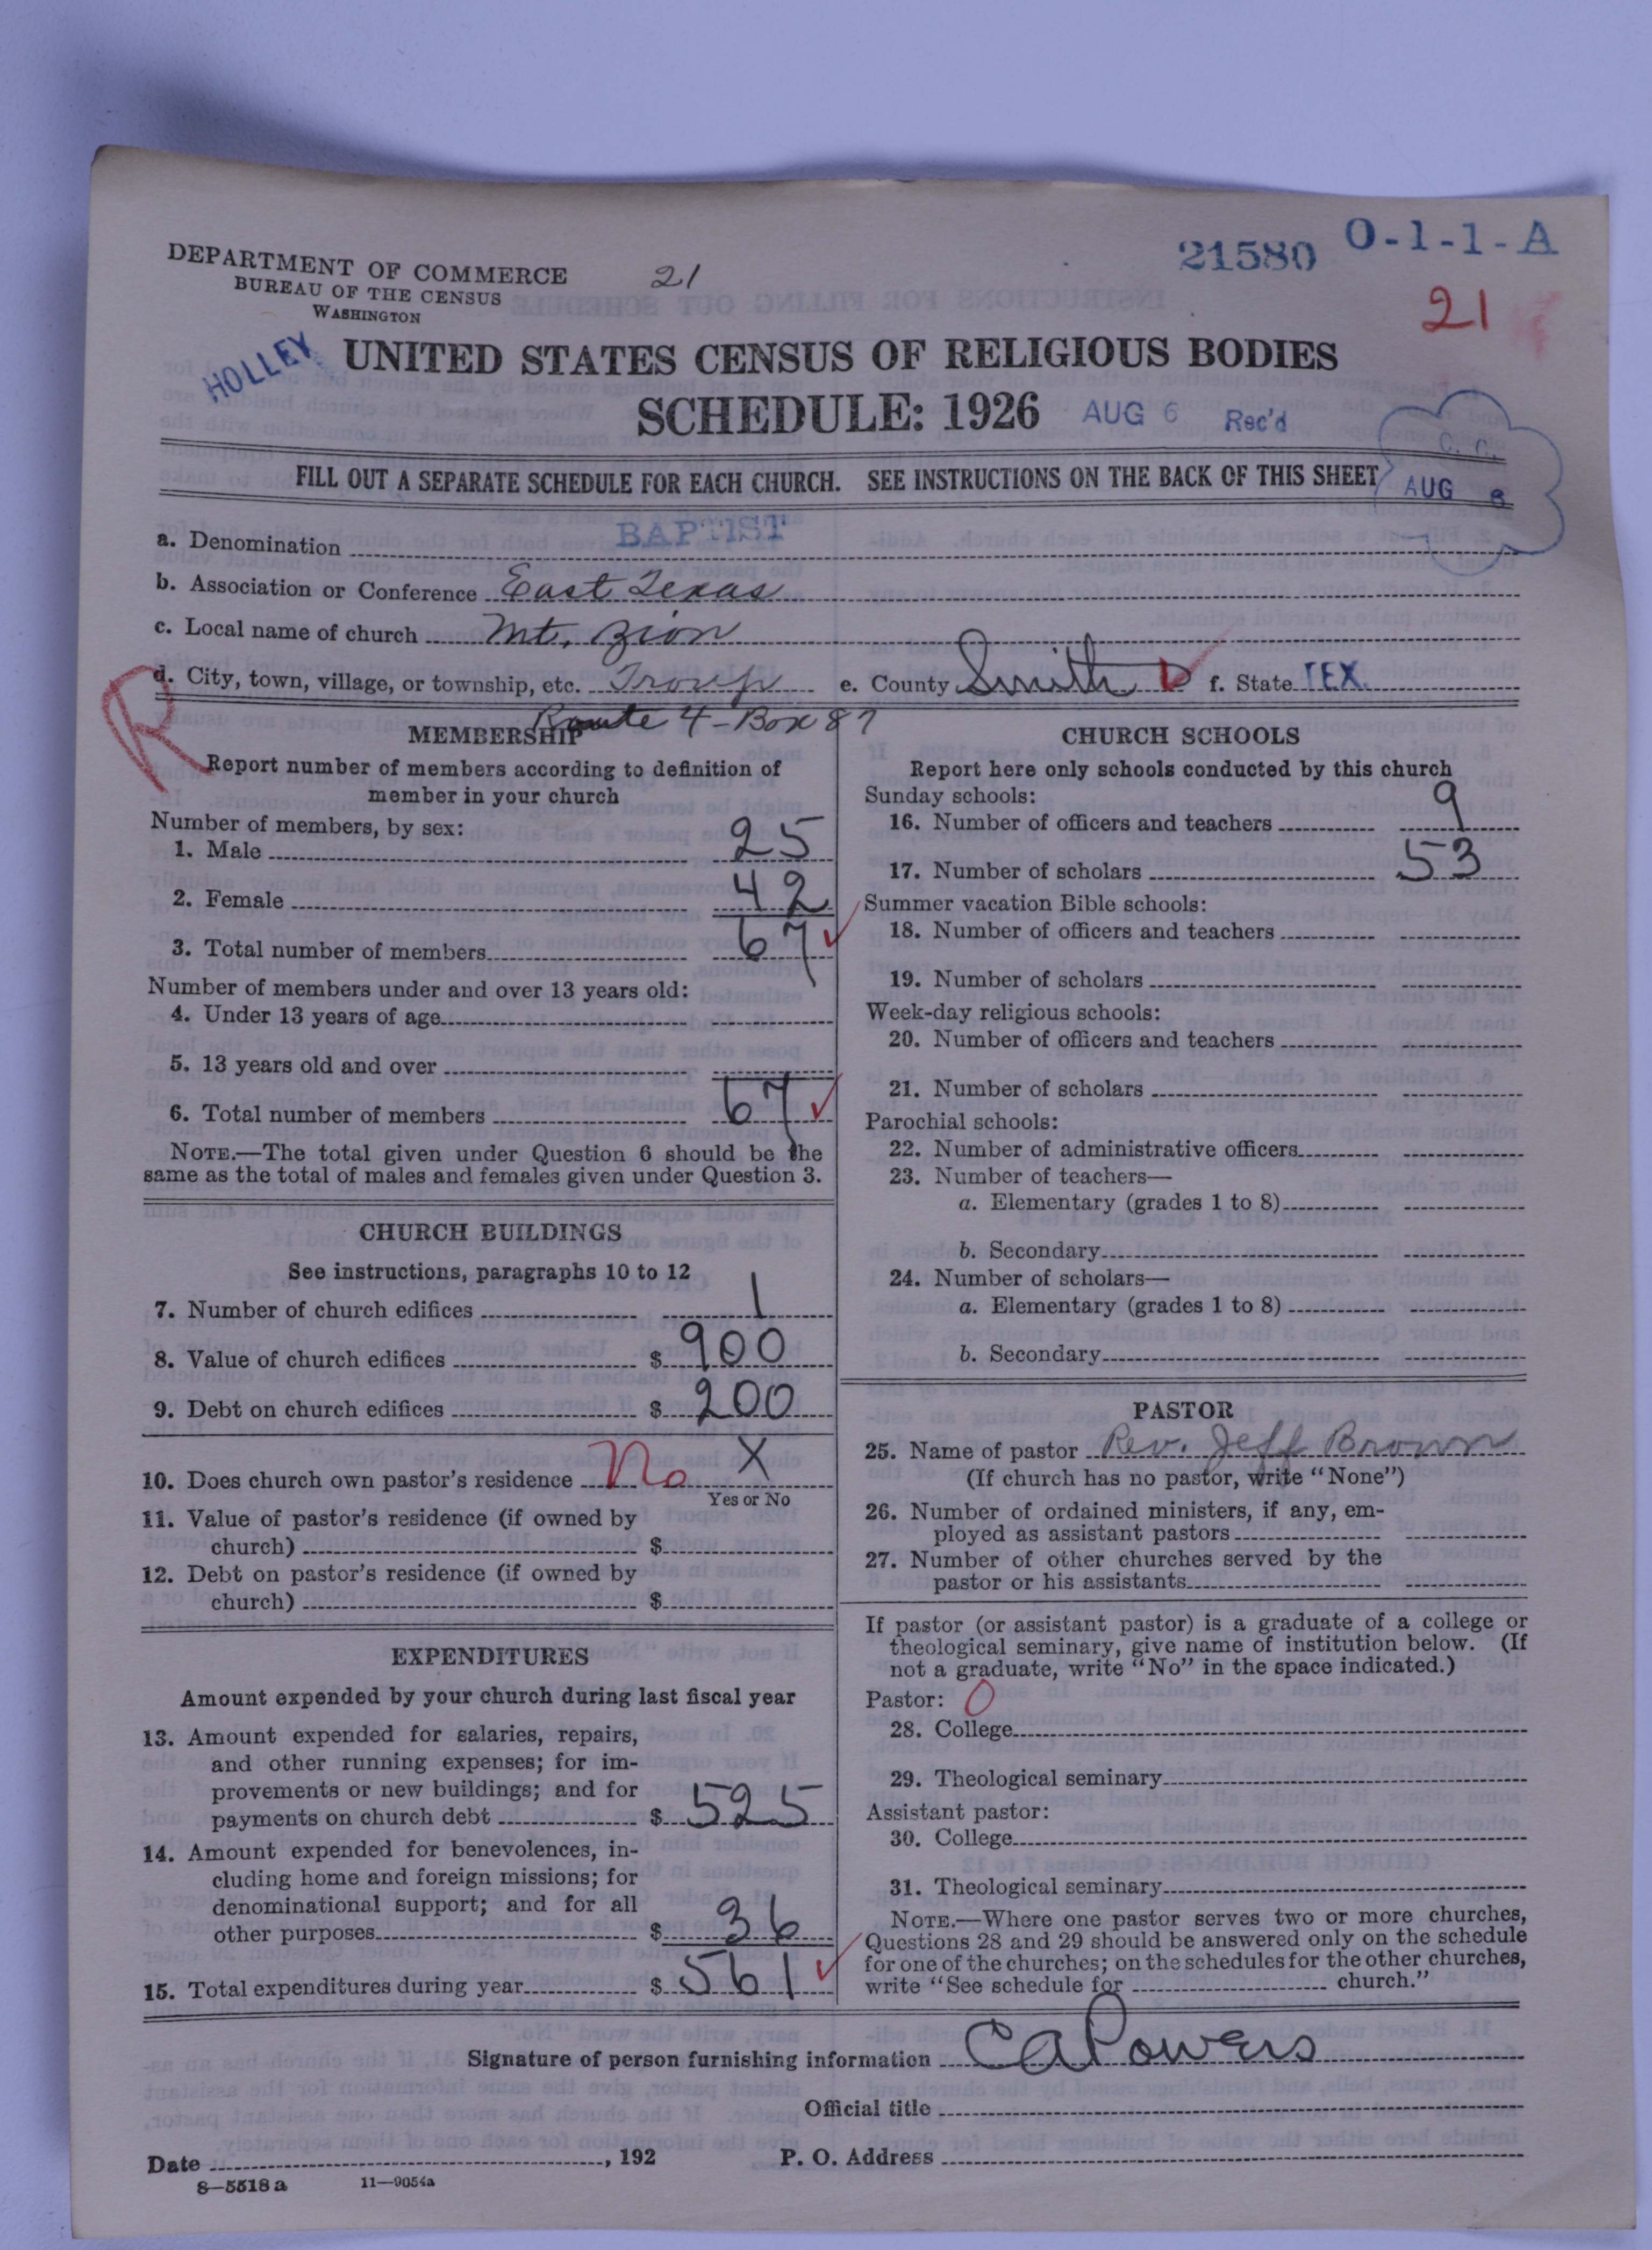 DEPARTMENT OF COMMERCE
BUREAU OF THE CENSUS
WASHINGTON
21
21580 O-1-1-A
21
HOLLEY
UNITED STATES CENSUS OF RELIGIOUS BODIES
SCHEDULE: 1926 AUG 6 Rec'd
FILL OUT A SEPARATE SCHEDULE FOR EACH CHURCH. SEE INSTRUCTIONS ON THE BACK OF THIS SHEET
AUG
a. Denomination BAPTIST
b. Association or Conference East Texas
c. Local name of church Mt. Zion
R
d. City, town, village, or township, etc. Troup e. County Smith f. State TEX.
Route 4 - Box 87
MEMBERSHIP
Report number of members according to definition of
member in your church
Number of members, by sex:
1. Male 25
2. Female 42
3. Total number of members 67
Number of members under and over 13 years old:
4. Under 13 years of age
5. 13 years old and over
6. Total number of members 67
NOTE.—The total given under Question 6 should be the
same as the total of males and females given under Question 3.
CHURCH BUILDINGS
See instructions, paragraphs 10 to 12
7. Number of church edifices 1
8. Value of church edifices $ 900
9. Debt on church edifices $ 200
10. Does church own pastor's residence No X
Yes or No
11. Value of pastor's residence (if owned by
church) $
12. Debt on pastor's residence (if owned by
church) $
EXPENDITURES
Amount expended by your church during last fiscal year
13. Amount expended for salaries, repairs,
and other running expenses; for im-
provements or new buildings; and for
payments on church debt $ 525
14. Amount expended for benevolences, in-
cluding home and foreign missions; for
denominational support; and for all
other purposes $ 36
15. Total expenditures during year $ 561
CHURCH SCHOOLS
Report here only schools conducted by this church
Sunday schools:
16. Number of officers and teachers 9
17. Number of scholars 53
Summer vacation Bible schools:
18. Number of officers and teachers
19. Number of scholars
Week-day religious schools:
20. Number of officers and teachers
21. Number of scholars
Parochial schools:
22. Number of administrative officers
23. Number of teachers—
a. Elementary (grades 1 to 8)
b. Secondary
24. Number of scholars—
a. Elementary (grades 1 to 8)
b. Secondary
PASTOR
25. Name of pastor Rev. Jeff Brown
(If church has no pastor, write "None")
26. Number of ordained ministers, if any, em-
ployed as assistant pastors
27. Number of other churches served by the
pastor or his assistants
If pastor (or assistant pastor) is a graduate of a college or
theological seminary, give name of institution below. (If
not a graduate, write "No" in the space indicated.)
Pastor: 0
28. College
29. Theological seminary
Assistant pastor:
30. College
31. Theological seminary
NOTE.—Where one pastor serves two or more churches,
Questions 28 and 29 should be answered only on the schedule
for one of the churches; on the schedules for the other churches,
write "See schedule for church."
Signature of person furnishing information C A Powers
Official title
Date , 192 P. O. Address
8—5518 a 11—9054a